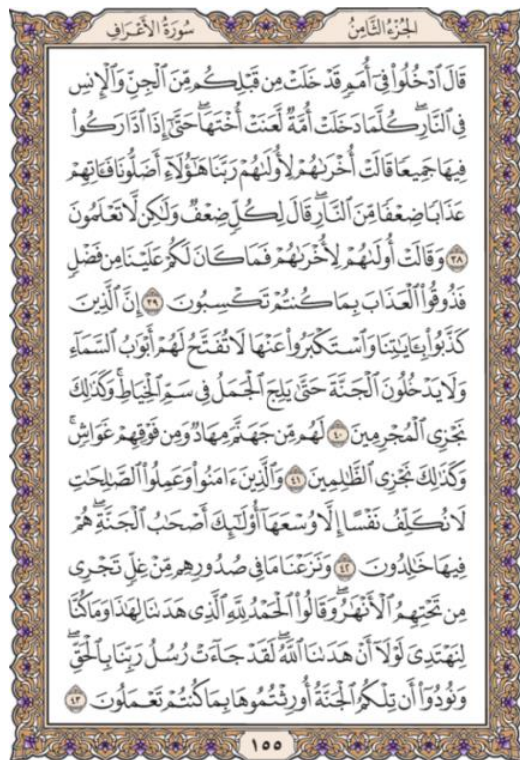 الجُزْءُ الثَّامِنُ سُورَةُ الأَعْرَافِ
قَالَ ٱدْخُلُوا۟ فِىٓ أُمَمٍ قَدْ خَلَتْ مِن قَبْلِكُم مِّنَ ٱلْجِنِّ وَٱلْإِنسِ
فِى ٱلنَّارِ ۖ كُلَّمَا دَخَلَتْ أُمَّةٌ لَّعَنَتْ أُخْتَهَا ۖ حَتَّىٰٓ إِذَا ٱدَّارَكُوا۟
فِيهَا جَمِيعًا قَالَتْ أُخْرَىٰهُمْ لِأُولَىٰهُمْ رَبَّنَا هَـٰٓؤُلَآءِ أَضَلُّونَا فَـَٔاتِهِمْ
عَذَابًا ضِعْفًا مِّنَ ٱلنَّارِ ۖ قَالَ لِكُلٍّ ضِعْفٌ وَلَـٰكِن لَّا تَعْلَمُونَ
٣٨ وَقَالَتْ أُولَىٰهُمْ لِأُخْرَىٰهُمْ فَمَا كَانَ لَكُمْ عَلَيْنَا مِن فَضْلٍ
فَذُوقُوا۟ ٱلْعَذَابَ بِمَا كُنتُمْ تَكْسِبُونَ ٣٩ إِنَّ ٱلَّذِينَ
كَذَّبُوا۟ بِـَٔايَـٰتِنَا وَٱسْتَكْبَرُوا۟ عَنْهَا لَا تُفَتَّحُ لَهُمْ أَبْوَٰبُ ٱلسَّمَآءِ
وَلَا يَدْخُلُونَ ٱلْجَنَّةَ حَتَّىٰ يَلِجَ ٱلْجَمَلُ فِى سَمِّ ٱلْخِيَاطِ ۚ وَكَذَٰلِكَ
نَجْزِى ٱلْمُجْرِمِينَ ٤٠ لَهُم مِّن جَهَنَّمَ مِهَادٌ وَمِن فَوْقِهِمْ غَوَاشٍ ۚ
وَكَذَٰلِكَ نَجْزِى ٱلظَّـٰلِمِينَ ٤١ وَٱلَّذِينَ ءَامَنُوا۟ وَعَمِلُوا۟ ٱلصَّـٰلِحَـٰتِ
لَا نُكَلِّفُ نَفْسًا إِلَّا وُسْعَهَآ أُو۟لَـٰٓئِكَ أَصْحَـٰبُ ٱلْجَنَّةِ ۖ هُمْ
فِيهَا خَـٰلِدُونَ ٤٢ وَنَزَعْنَا مَا فِى صُدُورِهِم مِّنْ غِلٍّ تَجْرِى
مِن تَحْتِهِمُ ٱلْأَنْهَـٰرُ ۖ وَقَالُوا۟ ٱلْحَمْدُ لِلَّهِ ٱلَّذِى هَدَىٰنَا لِهَـٰذَا وَمَا كُنَّا
لِنَهْتَدِىَ لَوْلَآ أَنْ هَدَىٰنَا ٱللَّهُ ۖ لَقَدْ جَآءَتْ رُسُلُ رَبِّنَا بِٱلْحَقِّ ۖ
وَنُودُوٓا۟ أَن تِلْكُمُ ٱلْجَنَّةُ أُورِثْتُمُوهَا بِمَا كُنتُمْ تَعْمَلُونَ ٤٣
١٥٥